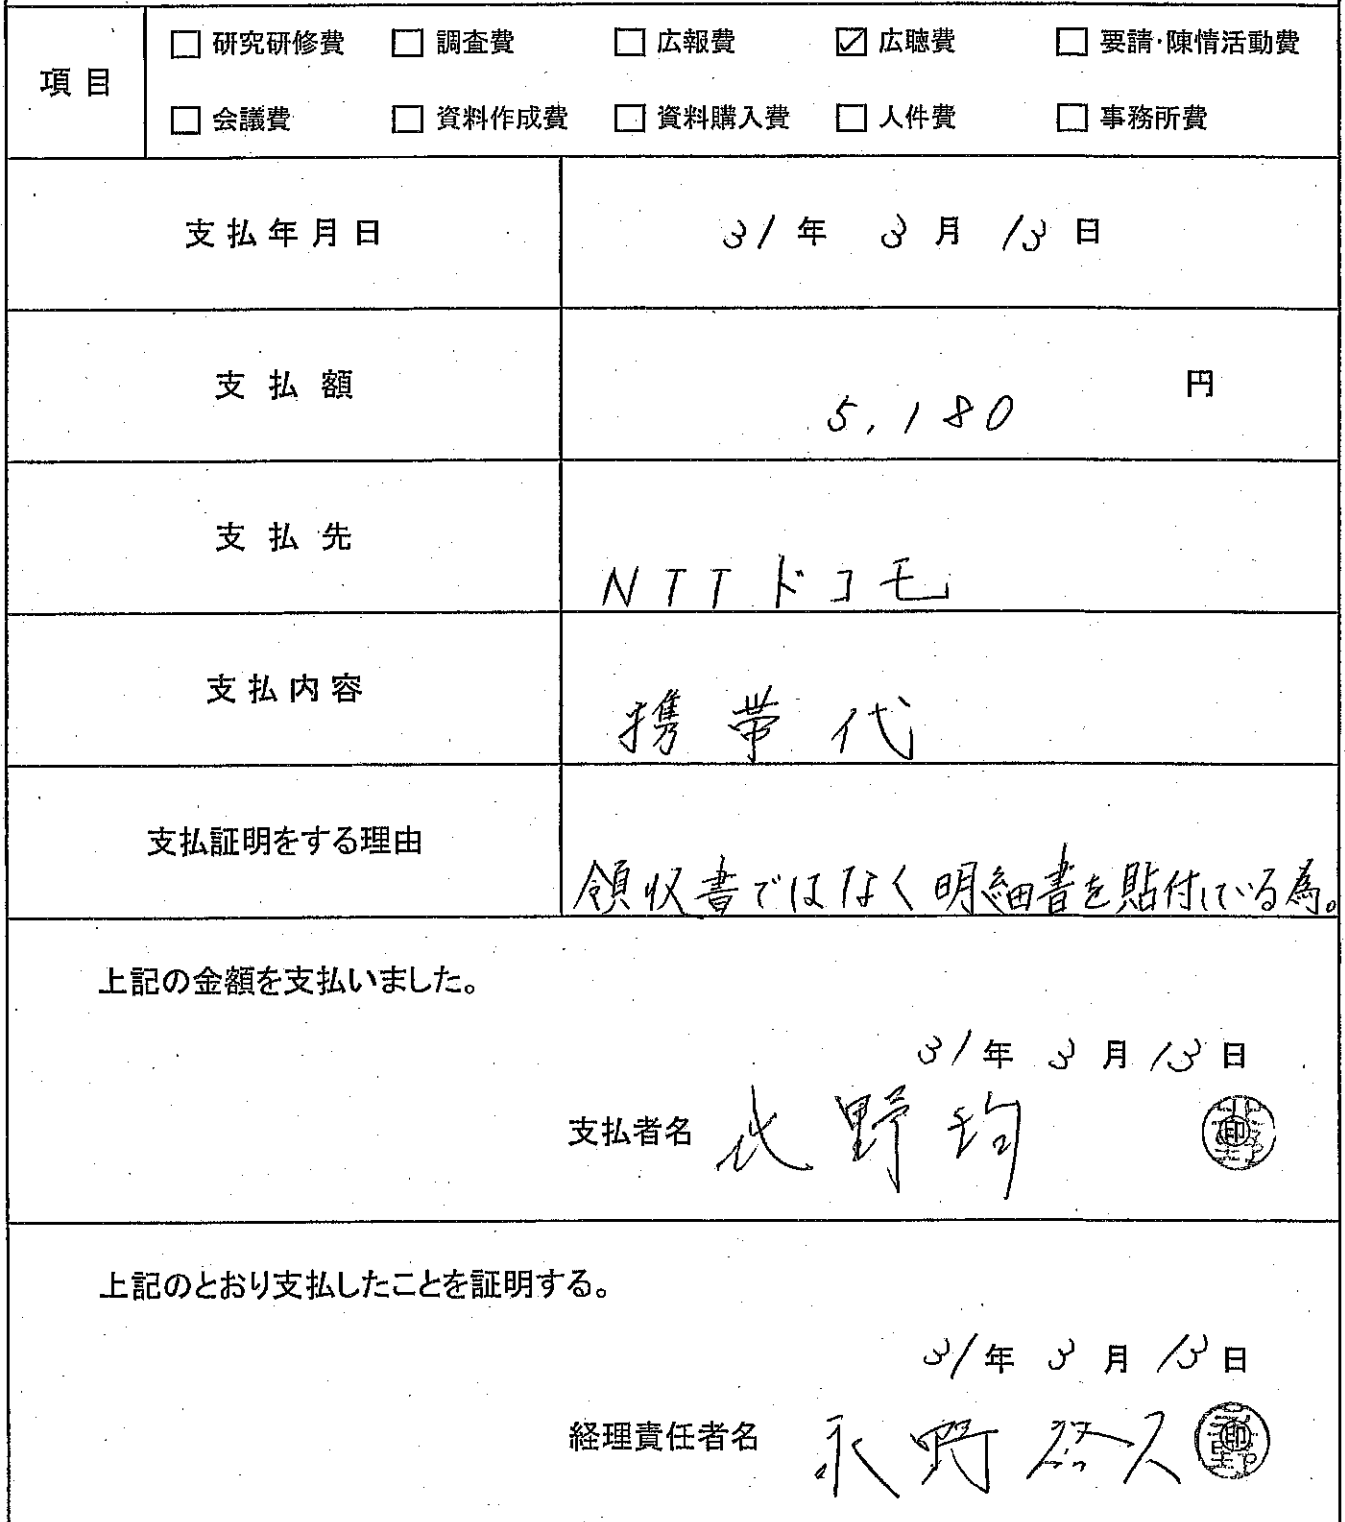 項目
□ 研究研修費 □ 調査費 □ 広報費 ☑ 広聴費 □ 要請・陳情活動費
□ 会議費 □ 資料作成費 □ 資料購入費 □ 人件費 □ 事務所費
支払年月日 31年 3月 13日
支払額 5,180 円
支払先 NTTドコモ
支払内容 携帯代
支払証明をする理由 領収書ではなく明細書を貼付している為。
上記の金額を支払いました。
31年 3月 13日
支払者名 野 均 印
上記のとおり支払したことを証明する。
31年 3月 13日
経理責任者名 永野 久 印